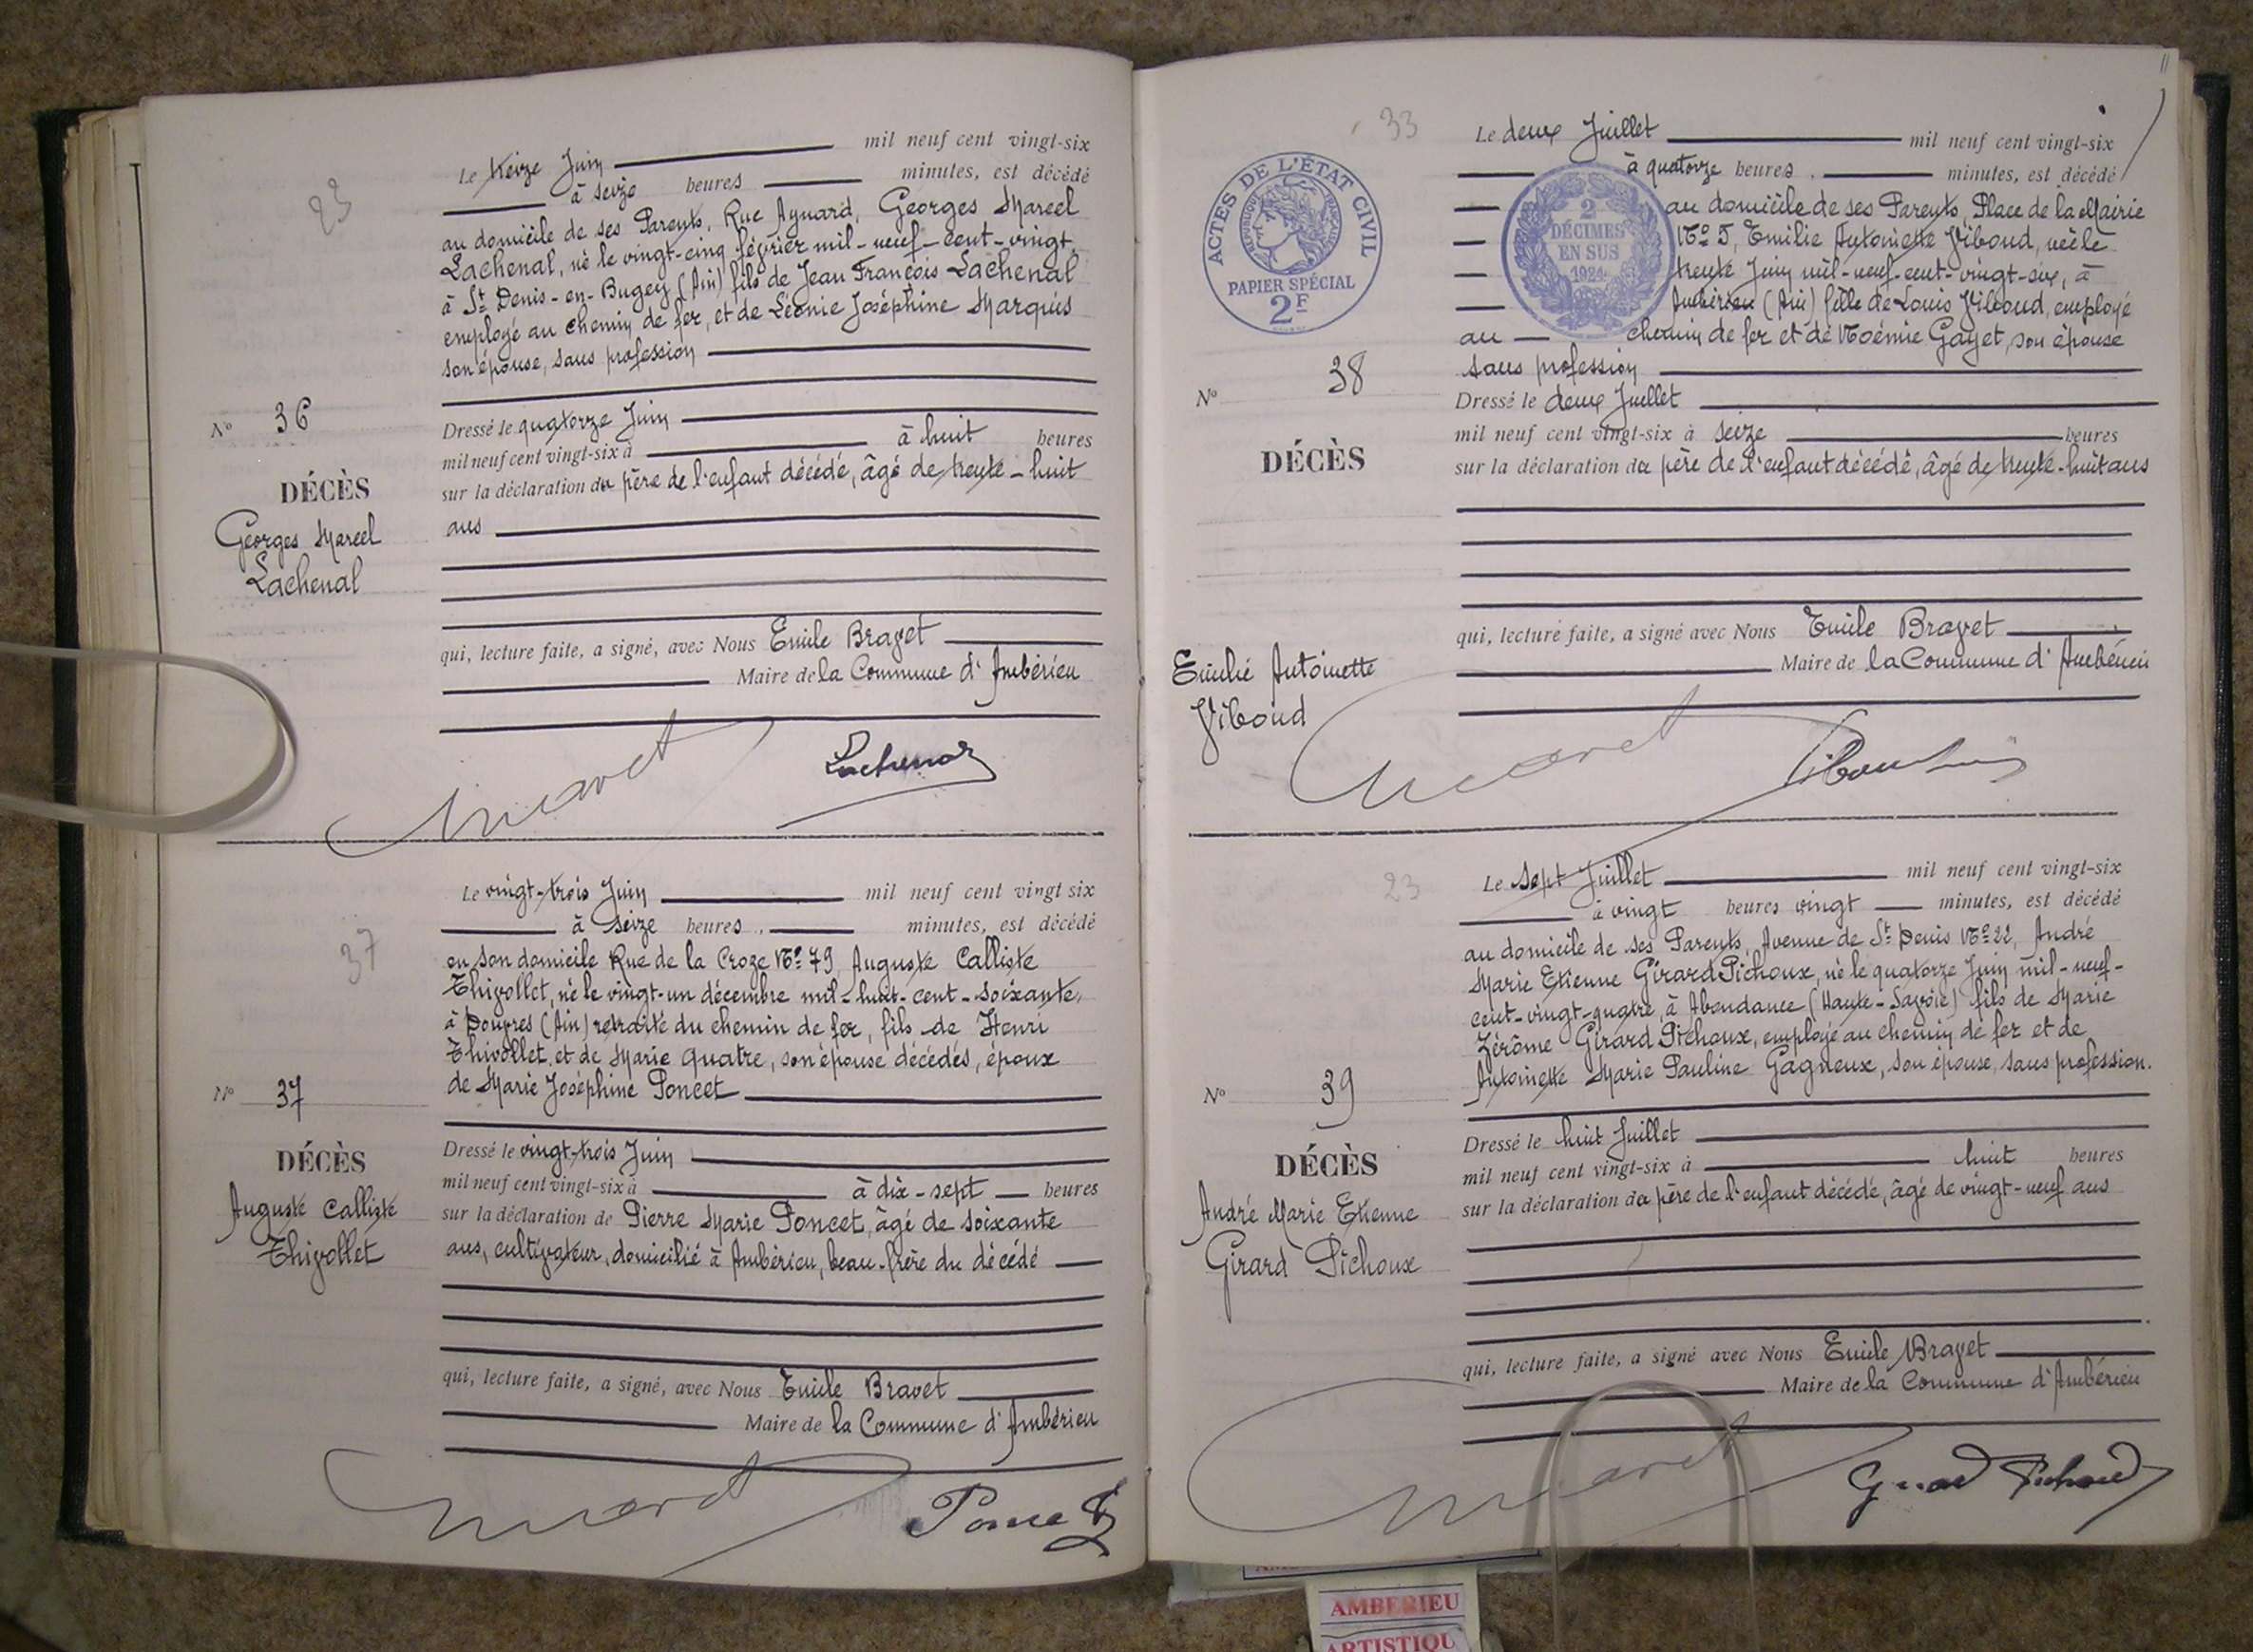 23
Le treize Juin mil neuf cent vingt-six
à seize heures minutes, est décédé
au domicile de ses Parents, Rue Aynard, Georges Marcel
Lachenal, né le vingt-cinq février mil-neuf-cent-vingt,
à St Denis-en-Bugey (Ain) fils de Jean François Lachenal
employé au chemin de fer, et de Léonie Joséphine Marquis
son épouse, sans profession
No 36
DÉCÈS
Georges Marcel
Lachenal
Dressé le quatorze Juin
mil neuf cent vingt-six à à huit heures
sur la déclaration du père de l'enfant décédé, âgé de trente-huit
ans
qui, lecture faite, a signé, avec Nous Emile Bravet
Maire de la Commune d'Ambérieu
Lachenal
37
Le vingt-trois Juin mil neuf cent vingt six
à seize heures minutes, est décédé
en son domicile Rue de la Croze No 79, Auguste Calliste
Thivollet, né le vingt-un décembre mil-huit-cent-soixante,
à Douvres (Ain) retraité du chemin de fer, fils de Henri
Thivollet et de Marie Quatre, son épouse décédés, époux
de Marie Joséphine Poncet
No 37
DÉCÈS
Auguste Calliste
Thivollet
Dressé le vingt-trois Juin
mil neuf cent vingt-six à à dix-sept heures
sur la déclaration de Pierre Marie Poncet, âgé de soixante
ans, cultivateur, domicilié à Ambérieu, beau-frère du décédé
qui, lecture faite, a signé, avec Nous Emile Bravet
Maire de la Commune d'Ambérieu
Poncet
33
ACTES DE L'ÉTAT CIVIL
RÉPUBLIQUE FRANÇAISE
PAPIER SPÉCIAL
2F
2
DÉCIMES
EN SUS
1924
Le deux Juillet mil neuf cent vingt-six
à quatorze heures minutes, est décédé
au domicile de ses Parents, Place de la Mairie
No 5, Emilie Antoinette Viboud, née le
trente Juin mil-neuf-cent-vingt-six, à
Ambérieu (Ain) fille de Louis Viboud, employé
au chemin de fer et de Noémie Gayet, son épouse
sans profession
No 38
DÉCÈS
Emilie Antoinette
Viboud
Dressé le deux Juillet
mil neuf cent vingt-six à seize heures
sur la déclaration du père de l'enfant décédé, âgé de trente-huit ans
qui, lecture faite, a signé avec Nous Emile Bravet
Maire de la Commune d'Ambérieu
23
Le sept Juillet mil neuf cent vingt-six
à vingt heures vingt minutes, est décédé
au domicile de ses Parents, Avenue de St Denis No 22, André
Marie Etienne Girard Pichoux, né le quatorze Juin mil-neuf-
cent-vingt-quatre, à Abondance (Haute-Savoie) fils de Marie
Jérôme Girard Pichoux, employé au chemin de fer et de
Antoinette Marie Pauline Gagneux, son épouse, sans profession.
No 39
DÉCÈS
André Marie Etienne
Girard Pichoux
Dressé le huit Juillet
mil neuf cent vingt-six à huit heures
sur la déclaration du père de l'enfant décédé, âgé de vingt-neuf ans
qui, lecture faite, a signé avec Nous Emile Bravet
Maire de la Commune d'Ambérieu
Girard Pichoux
AMBERIEU
ARTISTIQU